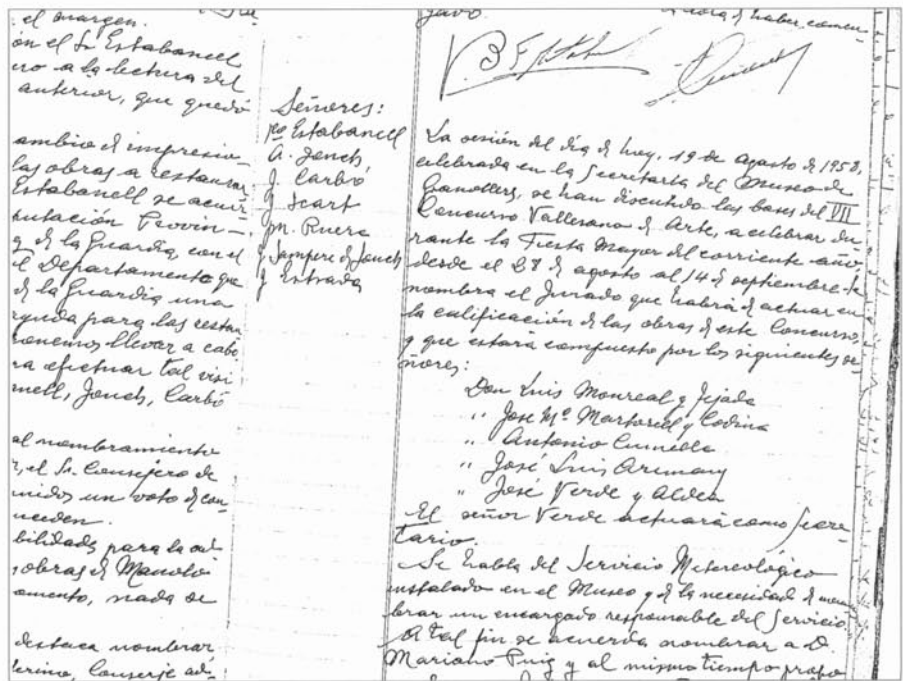 el margen.
on el Sr. Estabanell
ro a la lectura del
anterior, que quedó
ambio de impresio-
las obras a restaurar
Estabanell se acuer-
putación Provin-
y de la Guardia, con el
el Departamento que
de la Guardia una
ayuda para las restau
ponemos llevar a cabo
ra efectuar tal visi
nell, Jonch, Carbó
al nombramiento
r, el Sr. Consejero de
unidos un voto de con-
ceden.
bilidads para la ad
, obras de Manolo
amento, nada se
destaca nombrar
Conserje ad-
Señores:
Estabanell
A. Jonch
J. Carbó
J. Icart
M. Ruera
J. Sampere de Jonch
J. Estrada
hora de haber comen-
V. B
La sesión del día de hoy, 19 de agosto de 1958,
celebrada en la Secretaria del Museo de
Granollers, se han discutido las bases del VII
Concurso Vallesano de Arte, a celebrar du
rante la Fiesta Mayor del corriente año,
desde el 27 de agosto al 14 de septiembre. Se
nombra el Jurado que habrá de actuar en
la calificación de las obras de este Concurso,
y que estará compuesto por los siguientes se-
ñores:
Don Luis Monreal y Tejada
" José Mª. Martorell y Codina
" Antonio Cumella
" José Luis Aremany
" José Verde y Aldea
El señor Verde actuará como Secre-
tario.
Se habla del Servicio Metereológico
instalado en el Museo y de la necesidad de nom
brar un encargado responsable del Servicio.
A tal fin se acuerda nombrar a D.
Mariano Puig y al mismo tiempo propo